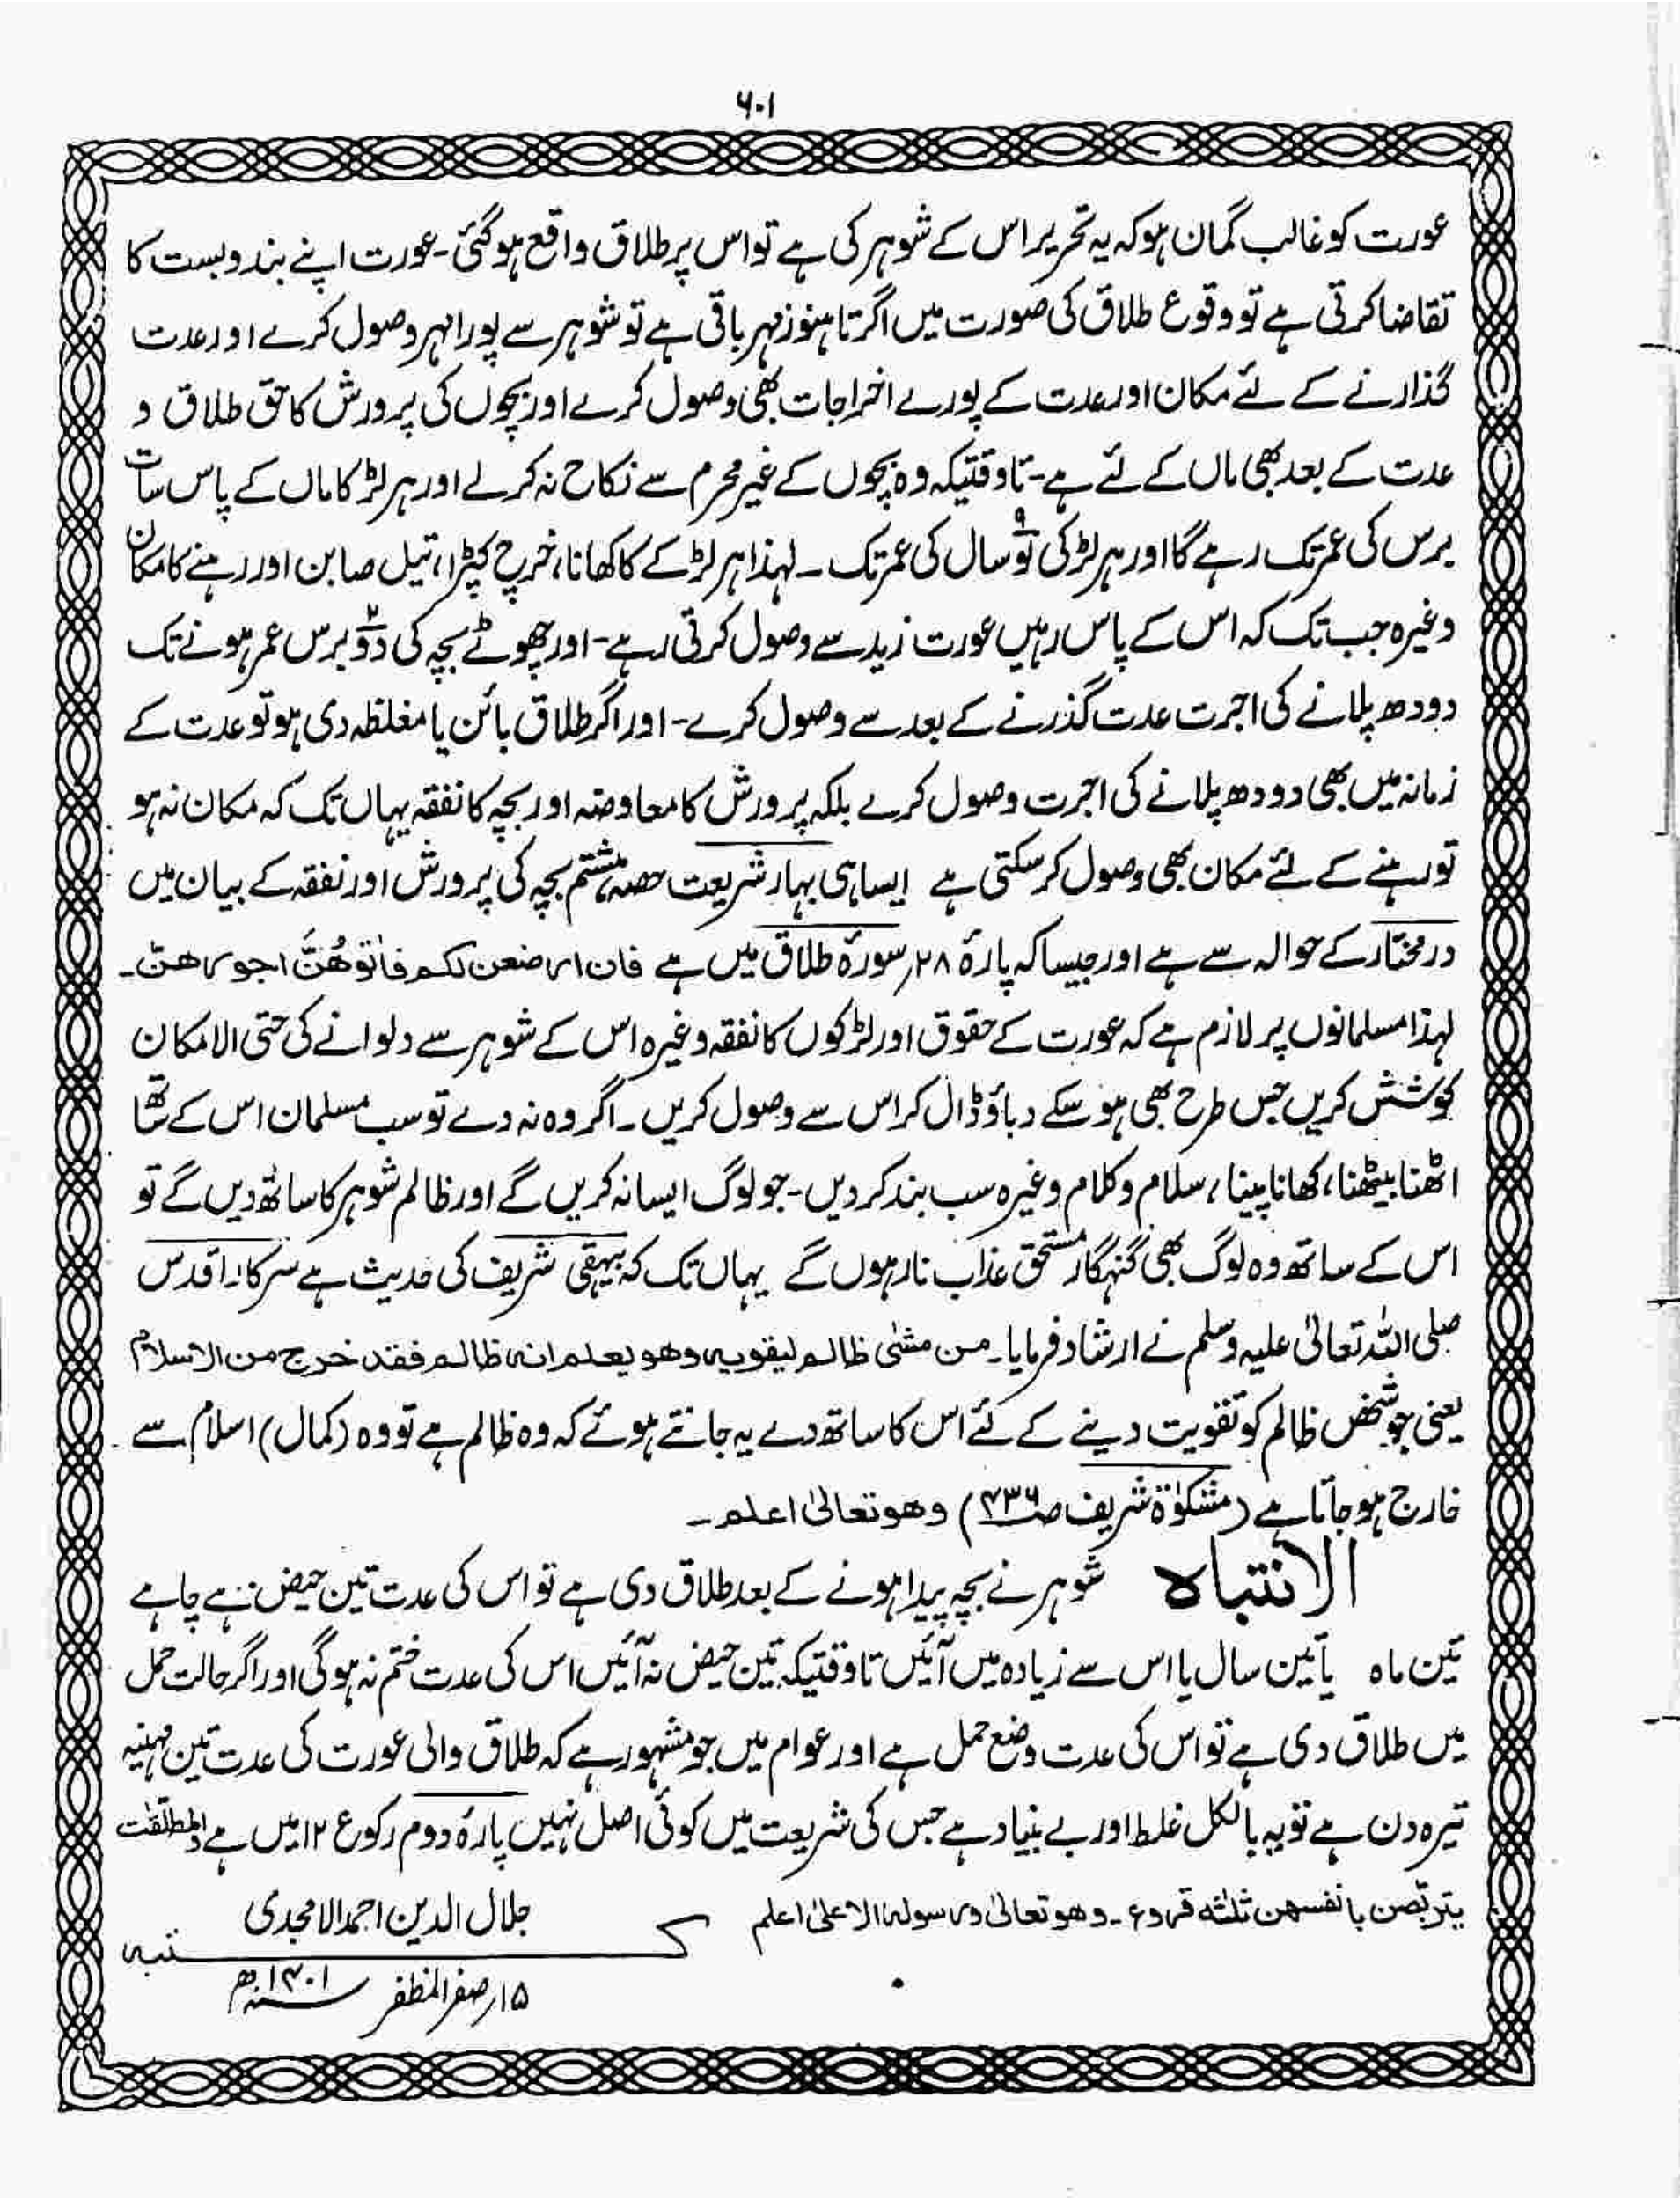 ۶۰۱
عورت کو غالب گمان ہو کہ یہ تحریر اس کے شوہر کی ہے تو اس پر طلاق واقع ہو گئی۔ عورت اپنے بندوبست کا
تقاضا کرتی ہے تو وقوع طلاق کی صورت میں اگر تا ہنوز مہر باقی ہے تو شوہر سے پورا مہر وصول کرے اور عدت
گذارنے کے لئے مکان اور عدت کے پورے اخراجات بھی وصول کرے اور بچوں کی پرورش کا حق طلاق و
عدت کے بعد بھی ماں کے لئے ہے۔ تاوقتیکہ وہ بچوں کے غیر محرم سے نکاح نہ کر لے اور ہر لڑکا ماں کے پاس سات
برس کی عمر تک رہے گا اور ہر لڑکی نو۹ سال کی عمر تک۔ لہذا ہر لڑکے کا کھانا، خرچ کپڑا، تیل صابن اور رہنے کا مکان
وغیرہ جب تک کہ اس کے پاس رہیں عورت زید سے وصول کرتی رہے۔ اور چھوٹے بچہ کی دو۲ برس عمر ہونے تک
دودھ پلانے کی اجرت عدت گذرنے کے بعد سے وصول کرے۔ اور اگر طلاق بائن یا مغلظہ دی ہو تو عدت کے
زمانہ میں بھی دودھ پلانے کی اجرت وصول کرے بلکہ پرورش کا معاوضہ اور بچہ کا نفقہ یہاں تک کہ مکان نہ ہو
تو رہنے کے لئے مکان بھی وصول کر سکتی ہے ایسا ہی بہار شریعت حصہ ہشتم بچہ کی پرورش اور نفقہ کے بیان میں
در مختار کے حوالہ سے ہے اور جیسا کہ پارۂ ۲۸ سورۂ طلاق میں ہے فان ارضعن لکم فاٰتوھُنَّ اجورھن۔
لہذا مسلمانوں پر لازم ہے کہ عورت کے حقوق اور لڑکوں کا نفقہ وغیرہ اس کے شوہر سے دلوانے کی حتی الامکان
کوشش کریں جس طرح بھی ہو سکے دباؤ ڈال کر اس سے وصول کریں۔ اگر وہ نہ دے تو سب مسلمان اس کے ساتھ
اٹھنا بیٹھنا، کھانا پینا، سلام و کلام وغیرہ سب بند کر دیں۔ جو لوگ ایسا نہ کریں گے اور ظالم شوہر کا ساتھ دیں گے تو
اس کے ساتھ وہ لوگ بھی گنہگار مستحق عذاب نار ہوں گے یہاں تک کہ بیہقی شریف کی حدیث ہے سرکار اقدس
صلی اللہ تعالیٰ علیہ وسلم نے ارشاد فرمایا۔ من مشیٰ ظالم لیقویہ وھو یعلم انہ ظالم فقد خرج من الاسلام
یعنی جو شخص ظالم کو تقویت دینے کے لئے اس کا ساتھ دے یہ جانتے ہوئے کہ وہ ظالم ہے تو وہ (کمال) اسلام سے
خارج ہو جاتا ہے (مشکوٰۃ شریف ص۴۳۶) وھو تعالیٰ اعلم۔
الانتباہ شوہر نے بچہ پیدا ہونے کے بعد طلاق دی ہے تو اس کی عدت تین حیض ہے چاہے
تین ماہ یا تین سال یا اس سے زیادہ میں آئیں تاوقتیکہ تین حیض نہ آئیں اس کی عدت ختم نہ ہوگی اور اگر حالت حمل
میں طلاق دی ہے تو اس کی عدت وضع حمل ہے اور عوام میں جو مشہور ہے کہ طلاق والی عورت کی عدت تین مہینہ
تیرہ دن ہے تو یہ بالکل غلط اور بے بنیاد ہے جس کی شریعت میں کوئی اصل نہیں پارۂ دوم رکوع ۱۲ میں ہے والمطلقٰت
یتربصن بانفسھن ثلٰثۃ قروء۔ وھو تعالیٰ ورسولہ الاعلیٰ اعلم
جلال الدین احمد الامجدی
کتبہ
۱۵ر صفر المظفر سنہ ۱۴۰۱ھ